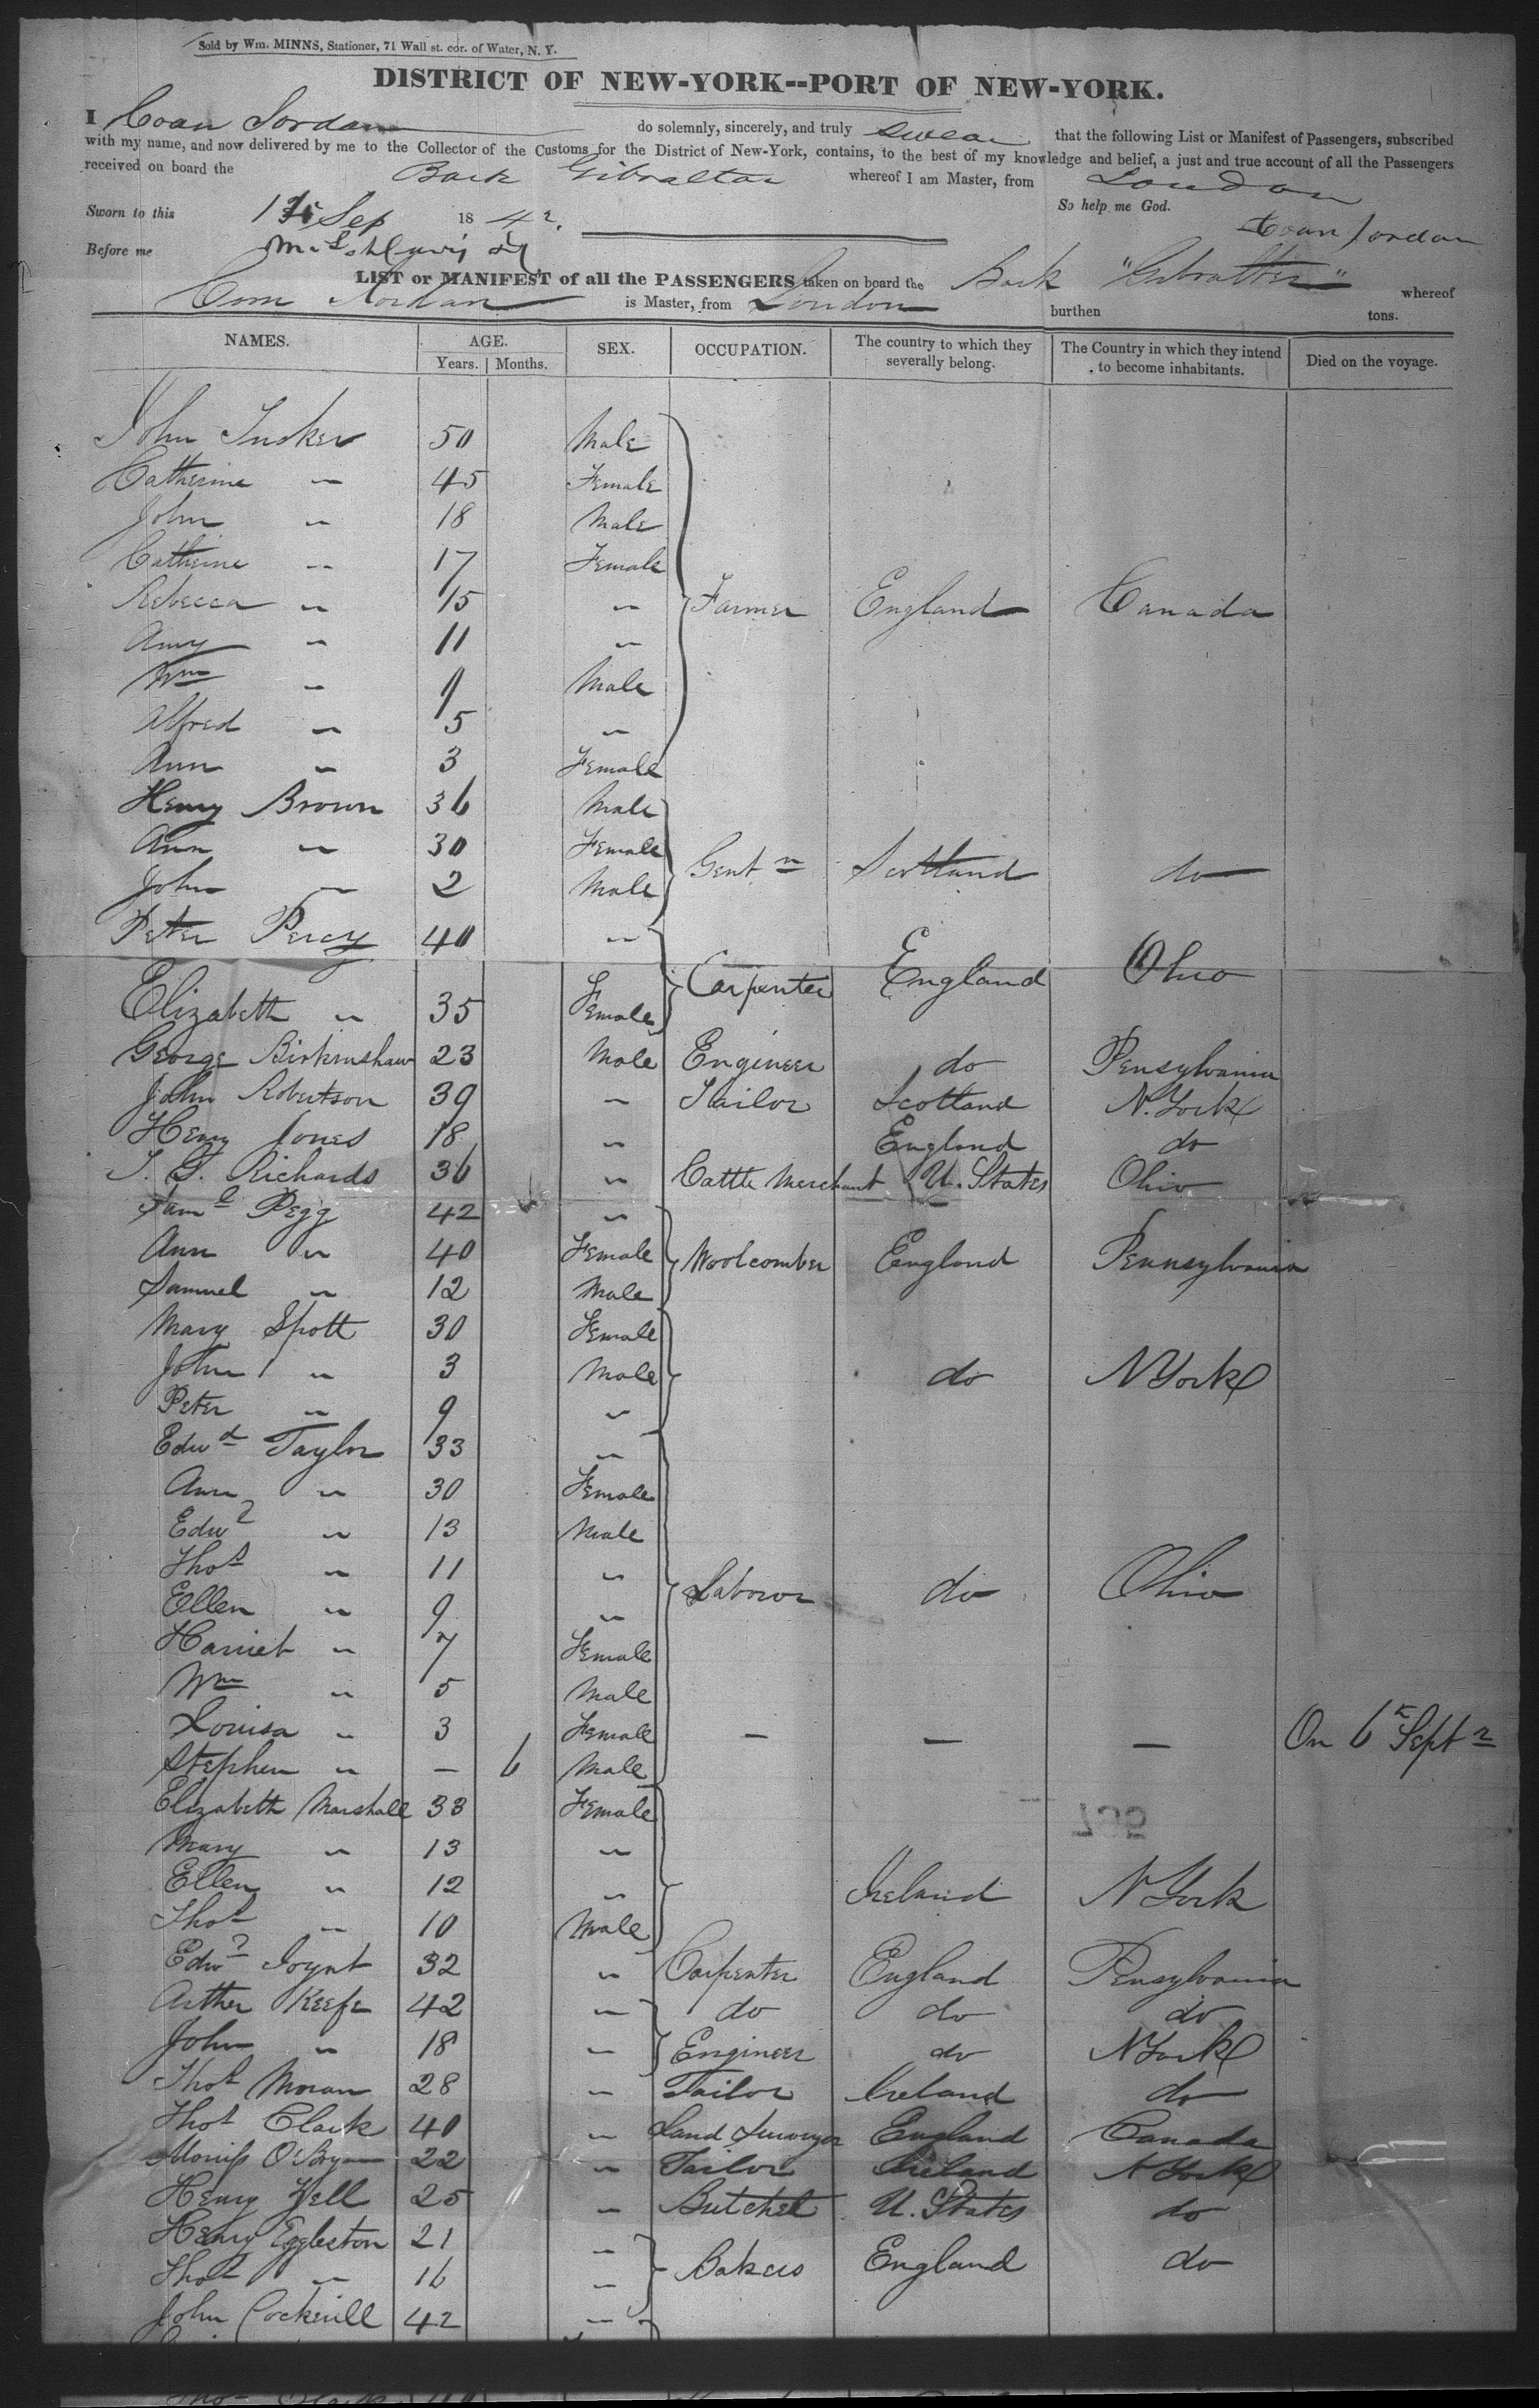 Sold by Wm. MINNS, Stationer, 71 Wall st. cor. of Water, N. Y.
DISTRICT OF NEW-YORK--PORT OF NEW-YORK.
I Coan Jordan do solemnly, sincerely, and truly swear that the following List or Manifest of Passengers, subscribed
with my name, and now delivered by me to the Collector of the Customs for the District of New-York, contains, to the best of my knowledge and belief, a just and true account of all the Passengers
received on board the Bark Gibraltar whereof I am Master, from London
Sworn to this Sep 18 42. So help me God.
Before me Coan Jordan
LIST or MANIFEST of all the PASSENGERS taken on board the Bark "Gibralter" whereof
Jordan is Master, from London burthen tons.
NAMES. AGE. SEX. OCCUPATION. The country to which they severally belong. The Country in which they intend to become inhabitants. Died on the voyage.
Years. Months.
John Tucker 50 Male
Catherine " 45 Female
John " 18 Male
Catherine " 17 Female
Rebecca " 15 " Farmer England Canada
Amy " 11 "
Wm " 9 Male
Alfred " 5 "
Ann " 3 Female
Henry Brown 36 Male
Ann " 30 Female Gentn Scotland do
John " 2 Male
Peter Percy 40 "
Elizabeth " 35 Female Carpenter England Ohio
George Birkinshaw 23 Male Engineer do Pensylvania
John Robertson 39 " Tailor Scotland N. York
Henry Jones 18 " England do
Richards 36 " Cattle Merchant U. States Ohio
Saml Pegg 42 "
Ann " 40 Female Woolcomber England Pennsylvania
Samuel " 12 Male
Mary Spott 30 Female
John " 3 Male do N York
Peter " 9 "
Edwd Taylor 33 "
Ann " 30 Female
Edwd " 13 Male
Thos " 11 "
Ellen " 9 " Laboror do Ohio
Harriet " 7 Female
Wm " 5 Male
Louisa " 3 Female — — — On 6th Septr
Stephen " — 6 Male
Elizabeth Marshall 33 Female
Mary " 13 "
Ellen " 12 " Ireland N York
Thos " 10 Male
Edwd Joynt 32 " Carpenter England Pensylvania
Arther Keefe 42 " do do do
John " 18 " Engineer do N York
Thos Moran 28 " Tailor Ireland do
Thos Clark 40 " Land Surveyor England Canada
Morriss O'Bryan 22 " Tailor Ireland N York
Henry Yell 25 " Butcher U. States do
Henry Eggleston 21 "
Thos " 16 " Bakers England do
John Cockerill 42 "